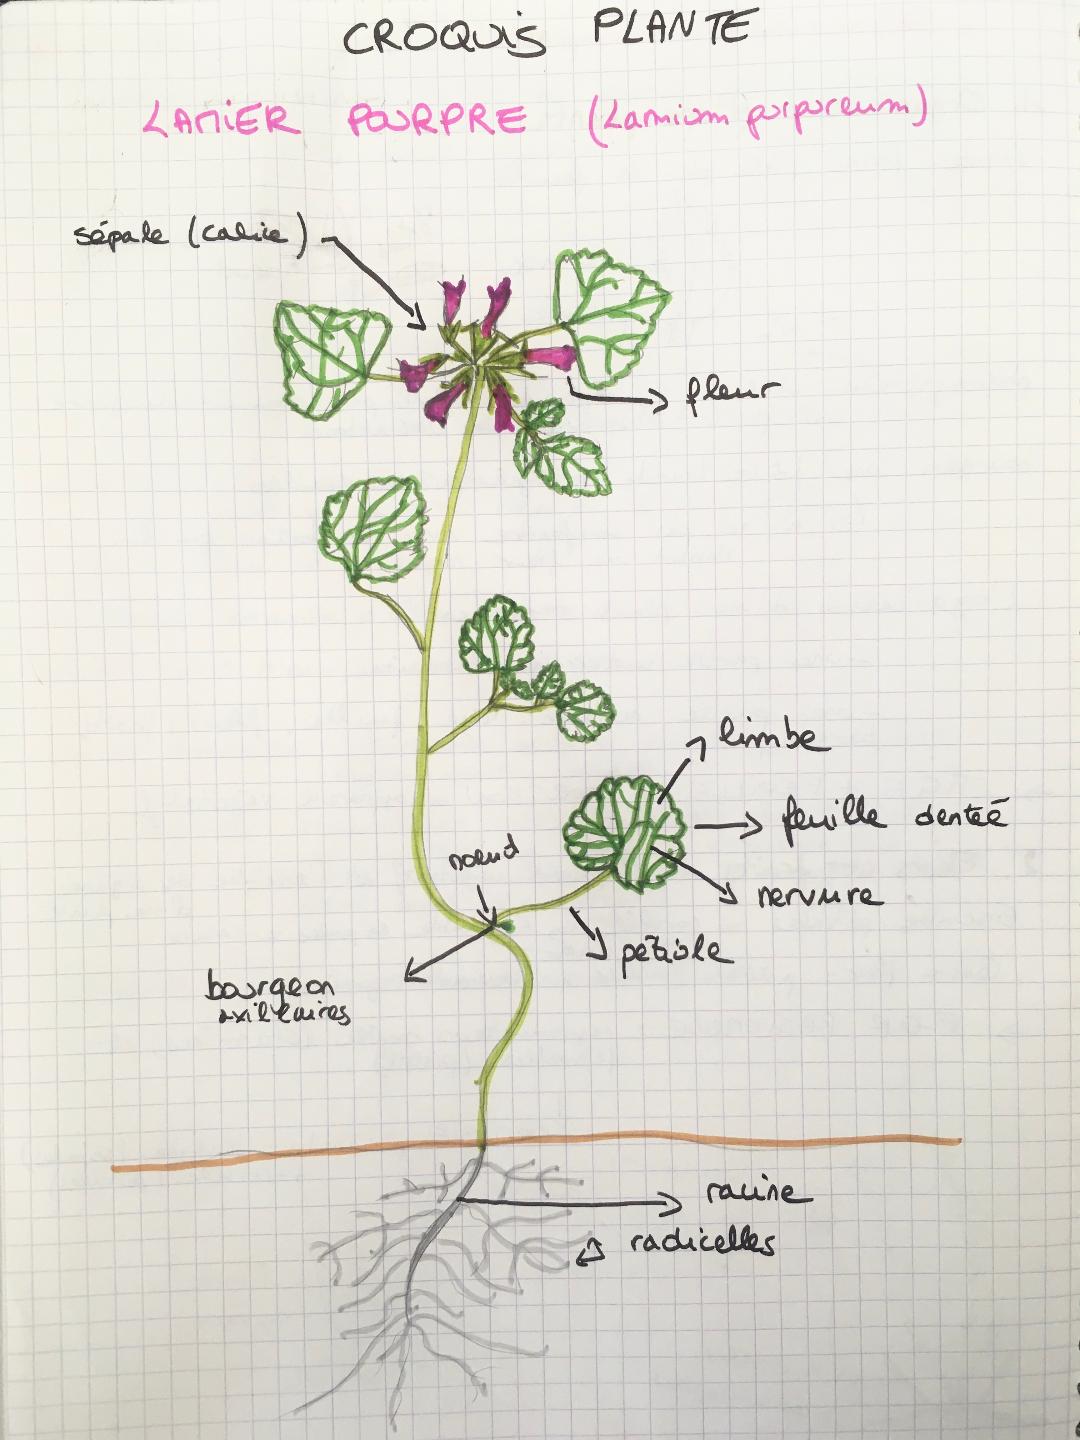 CROQUIS PLANTE
LAMIER POURPRE (Lamium purpureum)
sépale (calice)
fleur
limbe
feuille denteé
noeud
nervure
pétiole
bourgeon
axillaires
racine
radicelles